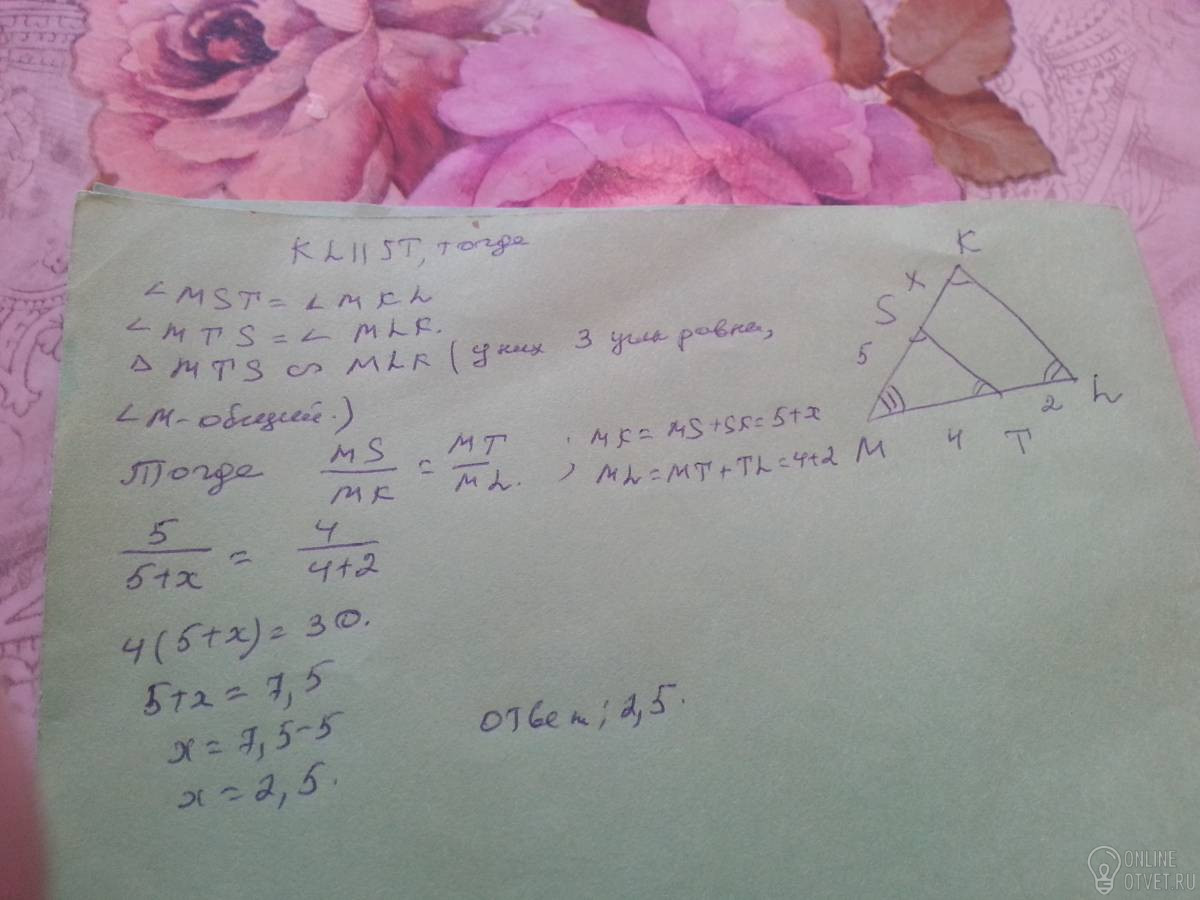 KL || ST, тогда
∠MST = ∠MKL
∠MTS = ∠MLK.
△ MTS ∽ MLK (у них 3 угла равны,
∠M-общий.)
Тогда MS/MK = MT/ML. ; MK = MS+SK=5+x
ML = MT+TL=4+2
5/(5+x) = 4/(4+2)
4(5+x)=30.
5+x=7,5
x=7,5-5
x=2,5.
ответ; 2,5.
K
x
S
5
M
4
T
2
L
ONLINE
OTVET.RU